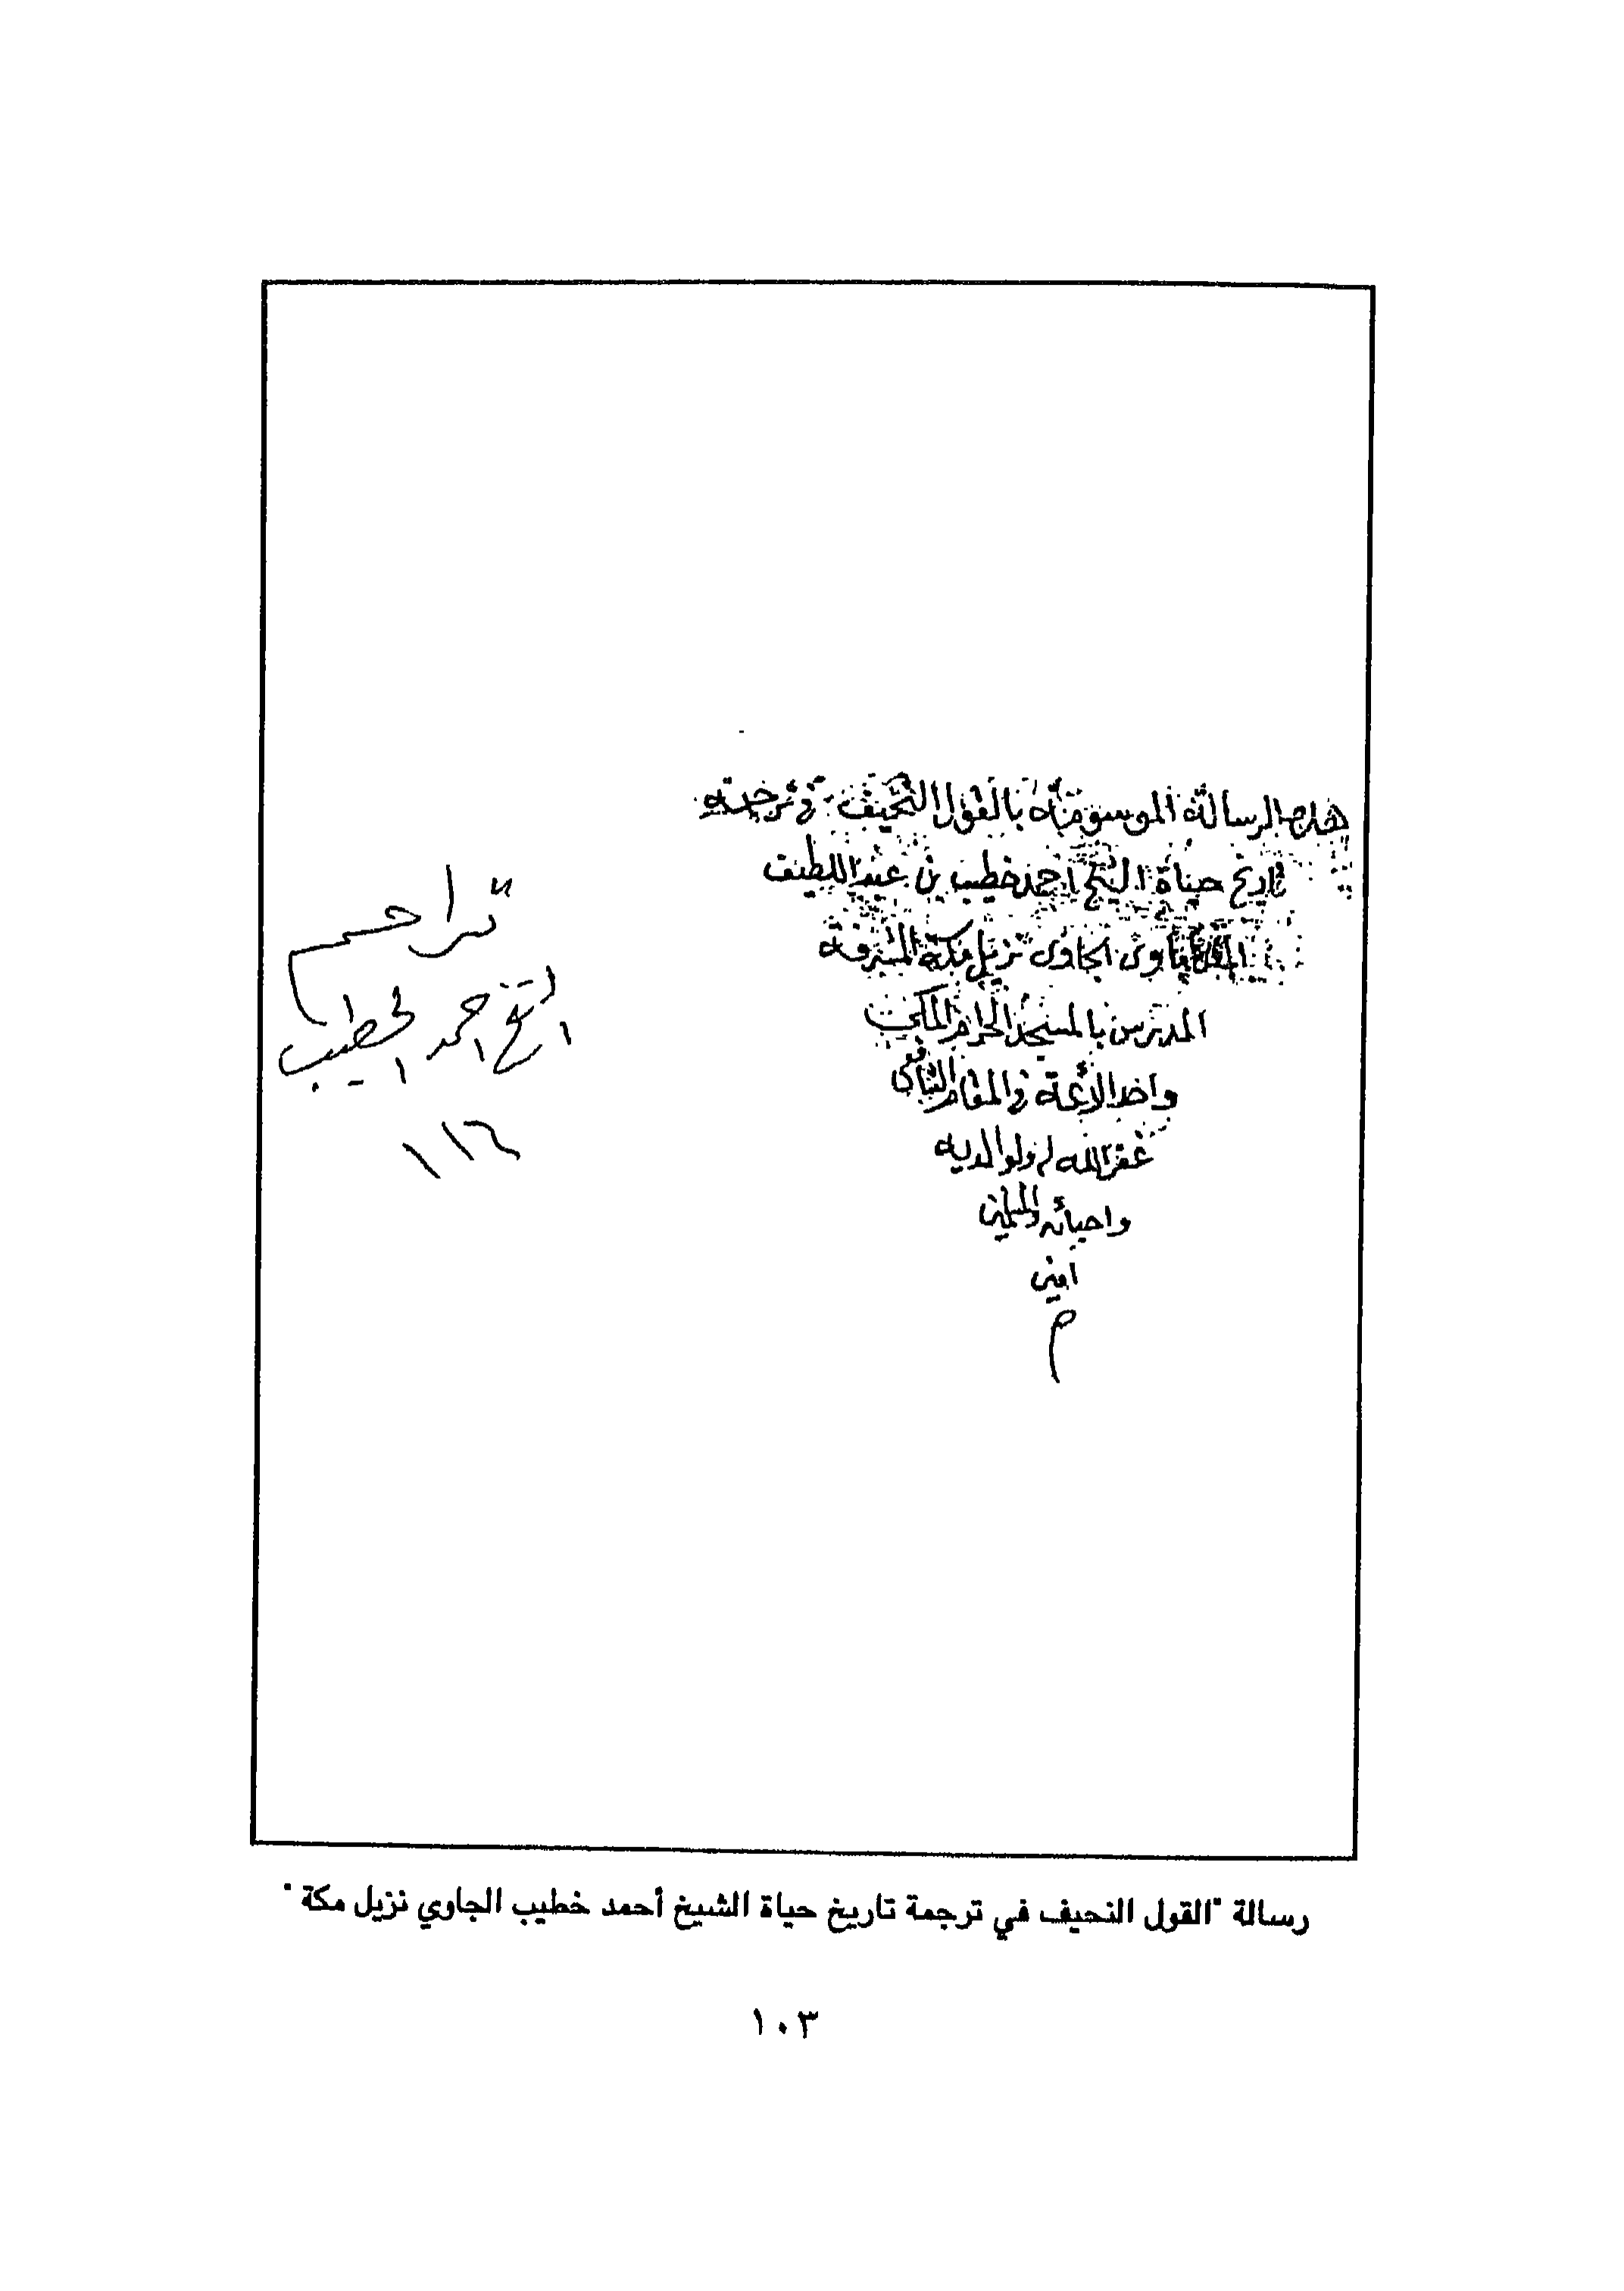 هذه الرسالة الموسومة بالقول النحيف في ترجمة
تاريخ حياة الشيخ احمد خطيب بن عبد اللطيف
الجاوى نزيل مكة المشرفة
المدرس بالمسجد الحرام المكي
واحد الأئمة في المقام الشافعي
غفر الله له ولوالديه
واحبائه والمسلمين
امين
م
تراجم
الشيخ احمد الخطيب
١١٦
رسالة "القول النحيف في ترجمة تاريخ حياة الشيخ أحمد خطيب الجاوي نزيل مكة "
١٠٣